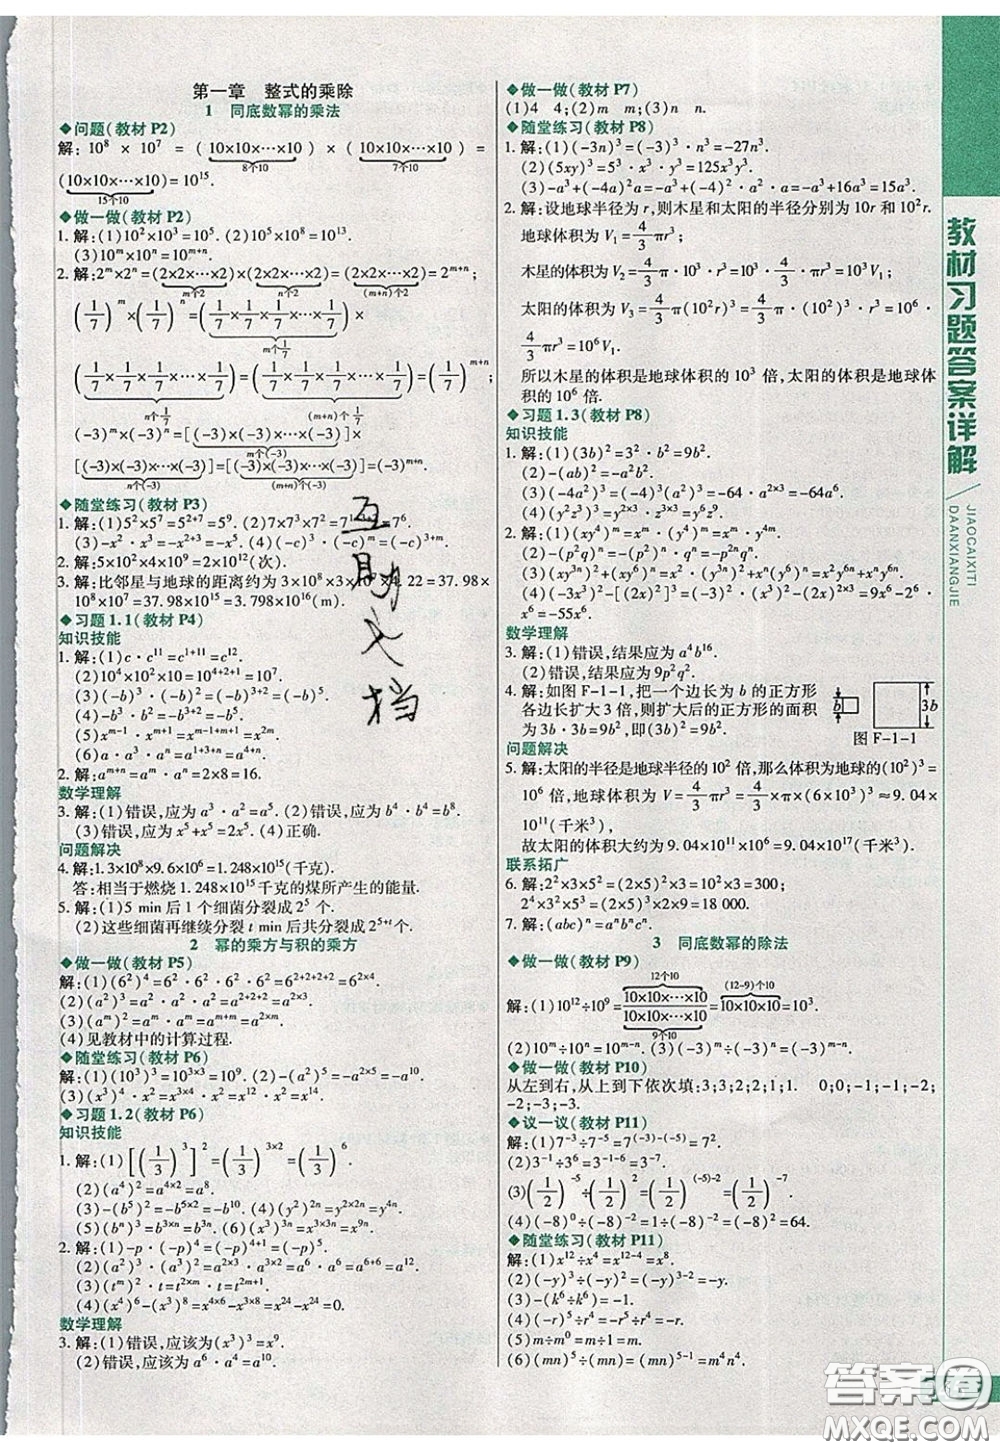 第一章 整式的乘除
1 同底数幂的乘法
◆问题(教材 P2)
解: 10⁸ × 10⁷ = (10×10×…×10) × (10×10×…×10) =
8个10 7个10
(10×10×…×10)=10¹⁵.
15个10
◆做一做(教材 P2)
1. 解:(1)10²×10³=10⁵. (2)10⁵×10⁸=10¹³.
(3)10ᵐ×10ⁿ=10ᵐ⁺ⁿ.
2. 解:2ᵐ×2ⁿ=(2×2×…×2)×(2×2×…×2)=2ᵐ⁺ⁿ;
m个2 n个2 (m+n)个2
(1/7)ᵐ×(1/7)ⁿ=(1/7×1/7×…×1/7)×
m个1/7
(1/7×1/7×…×1/7)=(1/7×1/7×…×1/7)=(1/7)ᵐ⁺ⁿ;
n个1/7 (m+n)个1/7
(-3)ᵐ×(-3)ⁿ=[(-3)×(-3)×…×(-3)]×
m个(-3)
[(-3)×(-3)×…×(-3)]=[(-3)×(-3)×…×(-3)]=(-3)ᵐ⁺ⁿ.
n个(-3) (m+n)个(-3)
◆随堂练习(教材 P3)
1. 解:(1)5²×5⁷=5²⁺⁷=5⁹. (2)7×7³×7²=7¹⁺³⁺²=7⁶.
(3)-x²·x³=-x²⁺³=-x⁵. (4)(-c)³·(-c)ᵐ=(-c)³⁺ᵐ.
2. 解:5×10²×4×10⁹=2×10¹²(次).
3. 解:比邻星与地球的距离约为 3×10⁸×3×10⁷×4.22=37.98×
10¹⁵=37.98×10¹⁵=3.798×10¹⁶(m).
◆习题 1.1(教材 P4)
知识技能
1. 解:(1)c·c¹¹=c¹⁺¹¹=c¹².
(2)10⁴×10²×10=10⁴⁺²⁺¹=10⁷.
(3)(-b)³·(-b)²=(-b)³⁺²=(-b)⁵.
(4)-b³·b²=-b³⁺²=-b⁵.
(5)xᵐ⁻¹·xᵐ⁺¹=xᵐ⁻¹⁺ᵐ⁺¹=x²ᵐ.
(6)a·a³·aⁿ=a¹⁺³⁺ⁿ=a⁴⁺ⁿ.
2. 解:aᵐ⁺ⁿ=aᵐ·aⁿ=2×8=16.
数学理解
3. 解:(1)错误,应为 a³·a²=a⁵. (2)错误,应为 b⁴·b⁴=b⁸.
(3)错误,应为 x⁵+x⁵=2x⁵. (4)正确.
问题解决
4. 解:1.3×10⁸×9.6×10⁶=1.248×10¹⁵(千克).
答:相当于燃烧 1.248×10¹⁵千克的煤所产生的能量.
5. 解:(1)5 min 后 1 个细菌分裂成 2⁵ 个.
(2)这些细菌再继续分裂 t min 后共分裂成 2⁵⁺ᵗ 个.
2 幂的乘方与积的乘方
◆做一做(教材 P5)
解:(1)(6²)⁴=6²·6²·6²·6²=6²⁺²⁺²⁺²=6⁸.
(2)(a²)³=a²·a²·a²=a²⁺²⁺²=a⁶.
(3)(aᵐ)²=aᵐ·aᵐ=aᵐ⁺ᵐ=a²ᵐ.
(4)见教材中的计算过程.
◆随堂练习(教材 P6)
解:(1)(10³)³=10³ˣ³=10⁹. (2)-(a²)⁵=-a²ˣ⁵=-a¹⁰.
(3)(x³)⁴·x²=x³ˣ⁴·x²=x¹²·x²=x¹⁴.
◆习题 1.2(教材 P6)
知识技能
1. 解:(1)[(1/3)³]²=(1/3)³ˣ²=(1/3)⁶
(2)(a⁴)²=a⁴ˣ²=a⁸.
(3)-(b⁵)²=-b⁵ˣ²=-b¹⁰. (4)(y²)²ⁿ=y²ˣ²ⁿ=y⁴ⁿ.
(5)(bⁿ)³=b³ˣⁿ=b³ⁿ. (6)(x³)³ⁿ=x³ˣ³ⁿ=x⁹ⁿ.
2. 解:(1)-p·(-p)⁴=(-p)¹⁺⁴=(-p)⁵=-p⁵.
(2)(a²)³·(a³)²=a²ˣ³·a³ˣ²=a⁶·a⁶=a¹².
(3)(t²)ᵐ·t=t²ˣᵐ·t=t²ᵐ⁺¹.
(4)(x⁴)⁶-(x³)⁸=x⁴ˣ⁶-x³ˣ⁸=x²⁴-x²⁴=0.
数学理解
3. 解:(1)错误,应该为(x³)³=x⁹.
(2)错误,应该为 a⁶·a⁴=a¹⁰.
◆做一做(教材 P7)
(1)4 4;(2)m m;(3)n n
◆随堂练习(教材 P8)
1. 解:(1)(-3n)³=(-3)³·n³=-27n³.
(2)(5xy)³=5³·x³·y³=125x³y³.
(3)-a³+(-4a)²a=-a³+(-4)²a²·a=-a³+16a³=15a³.
2. 解:设地球半径为 r,则木星和太阳的半径分别为 10r 和 10²r.
地球体积为 V₁=4/3πr³;
木星的体积为 V₂=4/3π·10³·r³=10³V₁;
太阳的体积为 V₃=4/3π(10²r)³=4/3π(10²)³·r³=10⁶·
4/3πr³=10⁶V₁.
所以木星的体积是地球体积的 10³ 倍,太阳的体积是地球体
积的 10⁶ 倍.
◆习题 1.3(教材 P8)
知识技能
1. 解:(1)(3b)²=3²·b²=9b².
(2)-(ab)²=-a²b².
(3)(-4a²)³=(-4)³·(a²)³=-64·a²ˣ³=-64a⁶.
(4)(y²z³)³=(y²)³·(z³)³=y⁶z⁹.
2. 解:(1)(xy⁴)ᵐ=xᵐ·(y⁴)ᵐ=xᵐy⁴ᵐ.
(2)-(p²q)ⁿ=-(p²)ⁿ·qⁿ=-p²ⁿqⁿ.
(3)(xy³ⁿ)²+(xy⁶)ⁿ=x²·(y³ⁿ)²+xⁿ·(y⁶)ⁿ=x²y⁶ⁿ+xⁿy⁶ⁿ.
(4)(-3x³)²-[(2x)²]³=(-3)²·(x³)²-(2x)⁶=9x⁶-2⁶·
x⁶=-55x⁶.
数学理解
3. 解:(1)错误,结果应为 a⁴b¹⁶.
(2)错误,结果应为 9p²q².
4. 解:如图 F-1-1,把一个边长为 b 的正方形
各边长扩大 3 倍,则扩大后的正方形的面积
为 3b·3b=9b²,即(3b)²=9b².
b 3b
图 F-1-1
问题解决
5. 解:太阳的半径是地球半径的 10² 倍,那么体积为地球的(10²)³=
10⁶ 倍,地球体积为 V=4/3πr³=4/3×π×(6×10³)³≈9.04×
10¹¹(千米³),
故太阳的体积大约为 9.04×10¹¹×10⁶=9.04×10¹⁷(千米³).
联系拓广
6. 解:2²×3×5²=(2×5)²×3=10²×3=300;
2⁴×3²×5³=(2×5)³×2×3²=18 000.
7. 解:(abc)ⁿ=aⁿbⁿcⁿ.
3 同底数幂的除法
◆做一做(教材 P9)
12个10 (12-9)个10
解:(1)10¹²÷10⁹=10×10×…×10/10×10×…×10=10×10×10=10³.
9个10
(2)10ᵐ÷10ⁿ=10ᵐ⁻ⁿ. (3)(-3)ᵐ÷(-3)ⁿ=(-3)ᵐ⁻ⁿ.
◆做一做(教材 P10)
从左到右,从上到下依次填:3;3;2;2;1;1. 0;0;-1;-1;-2;
-2;-3;-3.
◆议一议(教材 P11)
解:(1)7⁻³÷7⁻⁵=7⁽⁻³⁾⁻⁽⁻⁵⁾=7².
(2)3⁻¹÷3⁶=3⁻¹⁻⁶=3⁻⁷.
(3)(1/2)⁻⁵÷(1/2)²=(1/2)⁽⁻⁵⁾⁻²=(1/2)⁻⁷
(4)(-8)⁰÷(-8)⁻²=1÷(-8)⁻²=(-8)²=64.
◆随堂练习(教材 P11)
解:(1)x¹²÷x⁴=x¹²⁻⁴=x⁸.
(2)(-y)³÷(-y)²=(-y)³⁻²=-y.
(3)-(k⁶÷k⁶)=-1.
(4)(-r)⁵÷r⁴=-r⁵÷r⁴=-r.
(5)m÷m⁰=m÷1=m.
(6)(mn)⁵÷(mn)=(mn)⁵⁻¹=m⁴n⁴
教材习题答案详解
JIAOCAIXITI
DAANXIANGJIE
互助文档
答案卷
MXQE.COM